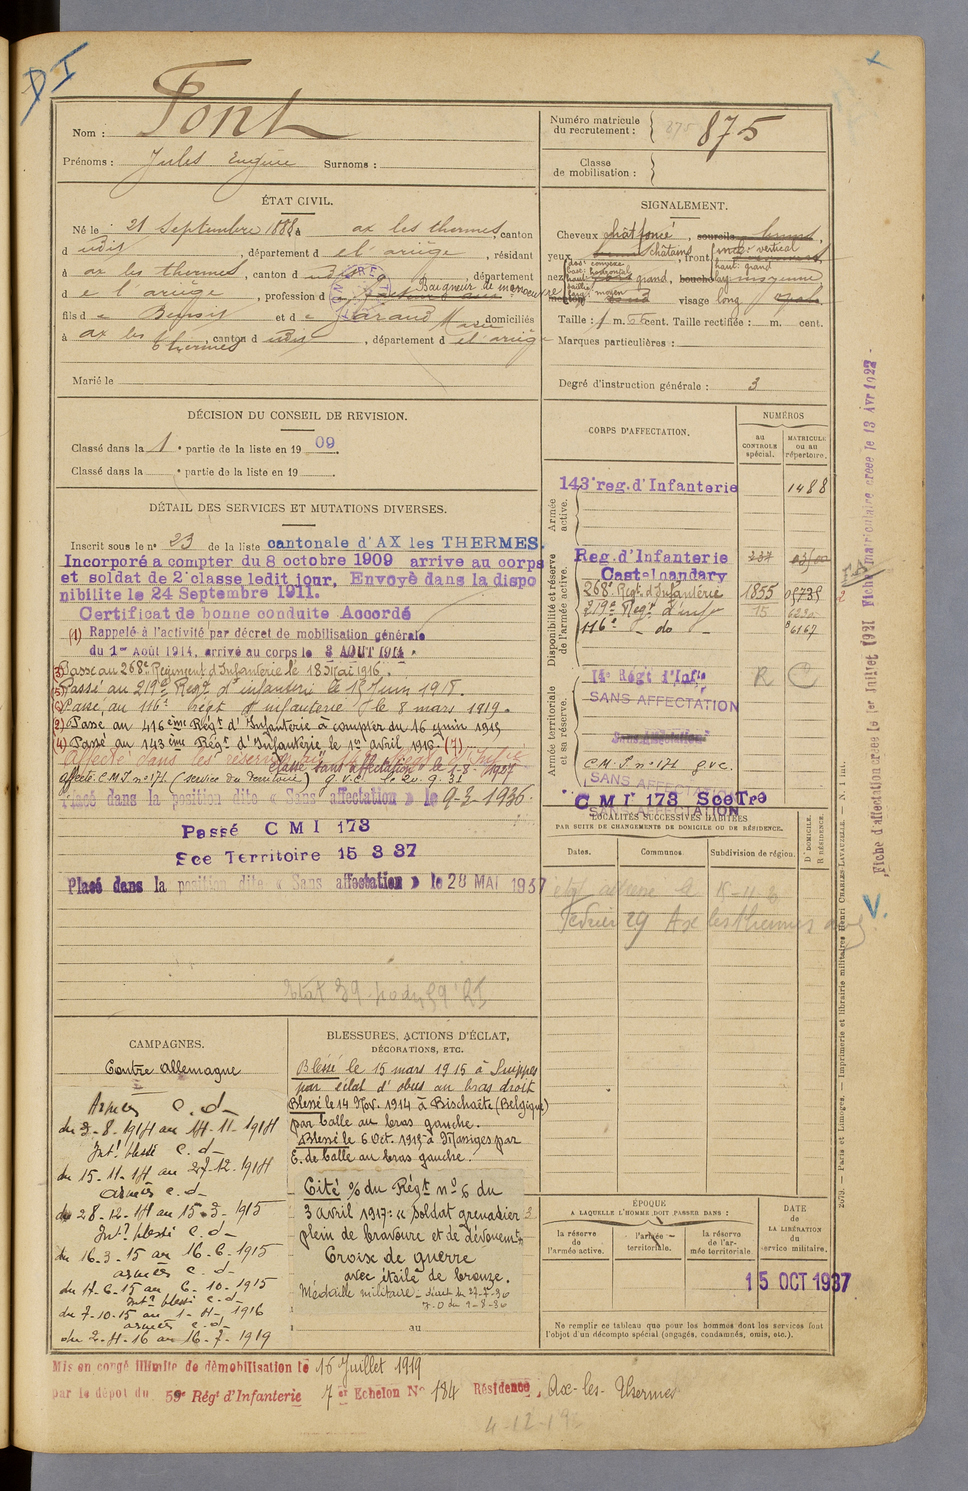 DI
Nom : Font
Prénoms : Jules Eugène Surnoms :
Numéro matricule du recrutement : 875
Classe de mobilisation :
ÉTAT CIVIL.
Né le : 21 Septembre 1888 à ax les thermes, canton
d udit, département d e l'ariège, résidant
à ax les thermes, canton d udit, département
d e l'ariège, profession d Baigneur de manoeuvre
fils d e et d e domiciliés
à ax les thermes, canton d udit, département d e l'ariège
Marié le
SIGNALEMENT.
Cheveux chât foncé, sourcils
yeux châtains, front vertical
haut: grand
dos: convexe
base: horizontal
nez grand, bouche moyenne
visage long
Taille : 1 m. cent. Taille rectifiée : m. cent.
Marques particulières :
Degré d'instruction générale : 3
DÉCISION DU CONSEIL DE REVISION.
Classé dans la 1 e partie de la liste en 19 09.
Classé dans la e partie de la liste en 19
DÉTAIL DES SERVICES ET MUTATIONS DIVERSES.
Inscrit sous le n° 23 de la liste cantonale d'AX les THERMES.
Incorporé a compter du 8 octobre 1909 arrive au corps
et soldat de 2e classe ledit jour, Envoyé dans la dispo
nibilite le 24 Septembre 1911.
Certificat de bonne conduite Accordé
(1) Rappelé à l'activité par décret de mobilisation générale
du 1er Août 1914, arrivé au corps le 3 AOUT 1914.
Passé au 268e Régiment d'Infanterie le 18 Mai 1916.
Passé au 219e Régt d'infanterie le 12 Juin 1918.
Passé au 116e régt d'infanterie le 8 mars 1919.
(2) Passé au 416ème Régt d'Infanterie à compter du 16 juin 1915
(4) Passé au 143ème Régt d'Infanterie le 1er avril 1916 (1)
Affecté dans les réserves
Classé sans affectation le 1-8-1927
affecté C.M.I n° 171 (service du Territoire) g.v.c. le 20.9.31
Placé dans la position dite « Sans affectation » le 9-3-1936.
Passé CMI 173
Sce Territoire 15 3 37
Placé dans la position dite « Sans affectation » le 28 MAI 1937
CORPS D'AFFECTATION.
NUMÉROS
au CONTROLE spécial.
MATRICULE ou au répertoire.
Armée active.
143e reg. d'Infanterie 1488
Disponibilité et réserve de l'armée active.
Reg. d'Infanterie
Castelnaudary
268e Regt. d'Infanterie 1855
219e Regt d'inf 15
116e do 6167
Armée territoriale et sa réserve.
Régt d'Infie R
SANS AFFECTATION
Sans affectation
C.M.I n° 171 g.v.c.
SANS AFFECTATION
CMI 173 Sce Tre
SANS AFFECTATION
LOCALITÉS SUCCESSIVES HABITÉES
PAR SUITE DE CHANGEMENTS DE DOMICILE OU DE RÉSIDENCE.
Dates. Communes. Subdivision de région. D DOMICILE. R RÉSIDENCE.
Février 29 Ax les Thermes
CAMPAGNES.
Contre allemagne
Armées c. d—
du 3-8-1914 au 14-11-1914
Intr blessé c. d—
du 15-11-14 au 27-12-1914
armées c. d—
du 28-12-14 au 15-3-1915
Intr blessé c. d—
du 16-3-15 au 16-6-1915
armées c. d—
du 17-6-15 au 6-10-1915
Intr blessé c. d—
du 7-10-15 au 1-11-1916
armées c. d—
du 2-11-16 au 16-7-1919
BLESSURES, ACTIONS D'ÉCLAT, DÉCORATIONS, ETC.
Blessé le 15 mars 1915 à Suippes
par éclat d'obus au bras droit
Blessé le 14 Nov. 1914 à Bischaëte (Belgique)
par balle au bras gauche.
Blessé le 6 Oct. 1915 à Massiges par
E. de balle au bras gauche.
Cité % du Régt n° 6 du
3 avril 1917: « Soldat grenadier
plein de bravoure et de dévouemt »
Croix de guerre
avec étoile de bronze.
Médaille militaire
au
ÉPOQUE
A LAQUELLE L'HOMME DOIT PASSER DANS :
la réserve de l'armée active.
l'armée territoriale.
la réserve de l'armée territoriale.
DATE de LA LIBÉRATION du service militaire.
15 OCT 1937
Ne remplir ce tableau que pour les hommes dont les services font
l'objet d'un décompte spécial (engagés, condamnés, omis, etc.).
Mis en congé illimité de démobilisation le 16 Juillet 1919
par le dépôt du 59e Régt d'Infanterie 7er Echelon N° 184 Résidence, Ax-les-Thermes
Fiche d'affectation créée le 1er Juillet 1921 Fiche matriculaire créée le 13 Avr 1922
2679. — Paris et Limoges. — Imprimerie et librairie militaires Henri CHARLES-LAVAUZELLE. — N. 1 int.